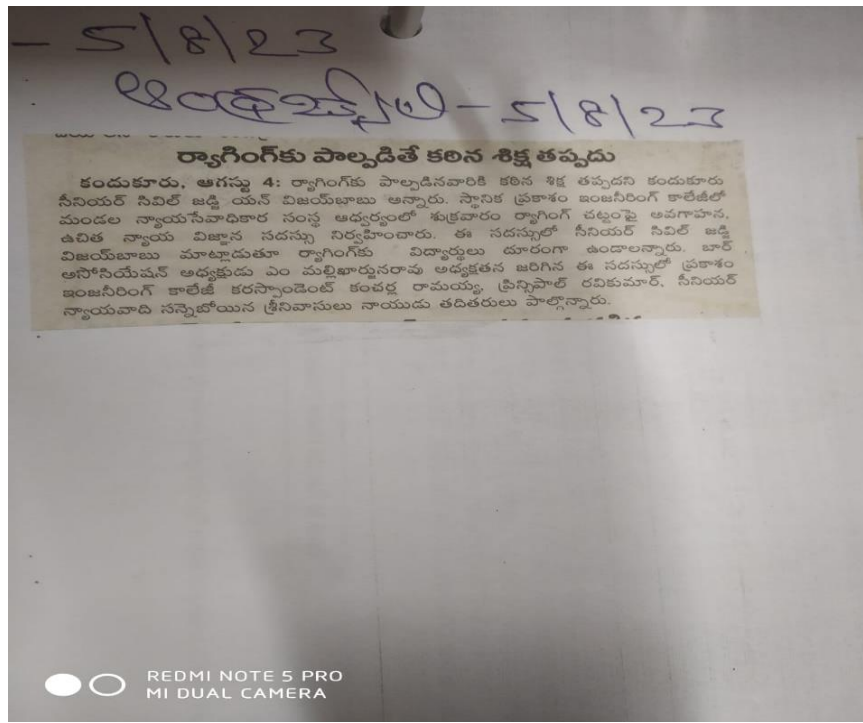 - 5/8/23
ఆంధ్రజ్యోతి - 5/8/23
ర్యాగింగ్‌కు పాల్పడితే కఠిన శిక్ష తప్పదు
కందుకూరు, ఆగస్టు 4: ర్యాగింగ్‌కు పాల్పడినవారికి కఠిన శిక్ష తప్పదని కందుకూరు
సీనియర్ సివిల్ జడ్జి యన్ విజయ్‌బాబు అన్నారు. స్థానిక ప్రకాశం ఇంజనీరింగ్ కాలేజీలో
మండల న్యాయసేవాధికార సంస్థ ఆధ్వర్యంలో శుక్రవారం ర్యాగింగ్ చట్టంపై అవగాహన,
ఉచిత న్యాయ విజ్ఞాన సదస్సు నిర్వహించారు. ఈ సదస్సులో సీనియర్ సివిల్ జడ్జి
విజయ్‌బాబు మాట్లాడుతూ ర్యాగింగ్‌కు విద్యార్థులు దూరంగా ఉండాలన్నారు. బార్
అసోసియేషన్ అధ్యక్షుడు ఎం మల్లిఖార్జునరావు అధ్యక్షతన జరిగిన ఈ సదస్సులో ప్రకాశం
ఇంజనీరింగ్ కాలేజీ కరస్పాండెంట్ కంచర్ల రామయ్య, ప్రిన్సిపాల్ రవికుమార్, సీనియర్
న్యాయవాది సన్నెబోయిన శ్రీనివాసులు నాయుడు తదితరులు పాల్గొన్నారు.
REDMI NOTE 5 PRO
MI DUAL CAMERA